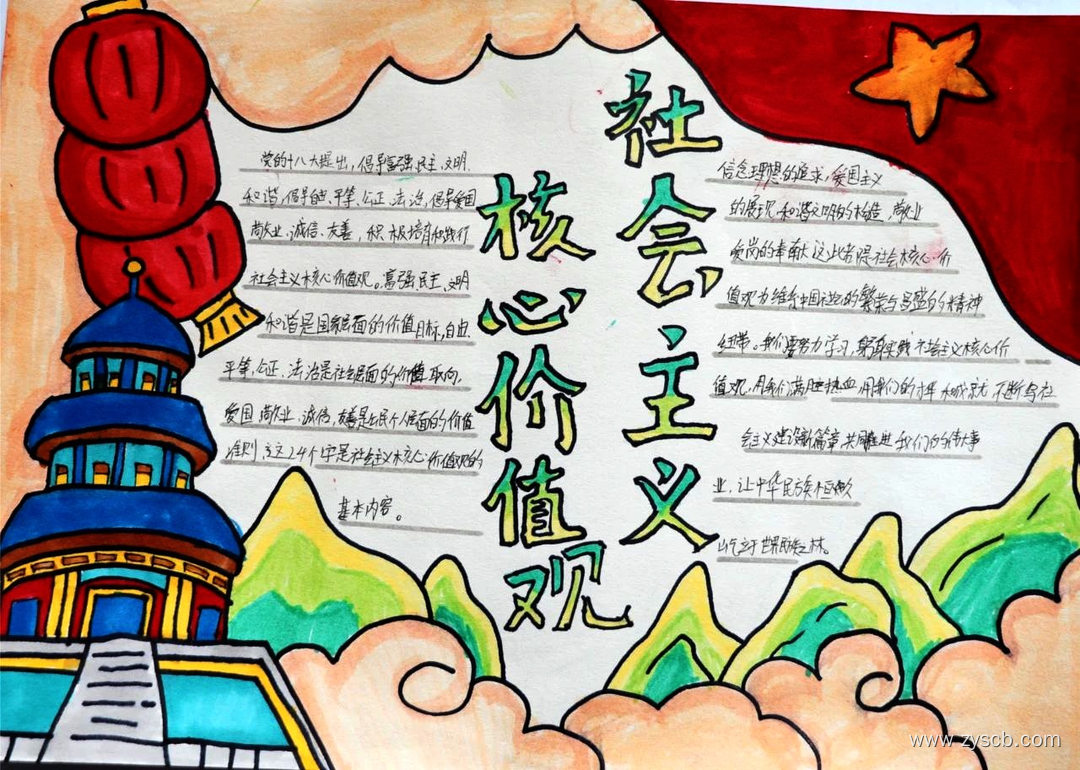 社会主义
核心价值观
党的十八大提出，倡导富强、民主、文明、
和谐，倡导自由、平等、公正、法治，倡导爱国、
敬业、诚信、友善，积极培育和践行
社会主义核心价值观。富强、民主、文明、
和谐是国家层面的价值目标，自由、
平等、公正、法治是社会层面的价值取向，
爱国、敬业、诚信、友善是公民个人层面的价值
准则，这24个字是社会主义核心价值观的
基本内容。
信念理想的追求，爱国主义
的展现，和谐文明的构造，敬业
爱岗的奉献这些都是社会核心价
值观为维系中国社会的繁荣与昌盛的精神
纽带。我们要努力学习，躬身实践社会主义核心价
值观，用我们满腔热血，用我们的
会主义建设新篇章，共同推进我们的伟大事
业，让中华民族
屹立于世界民族之林。
www.zyscb.com